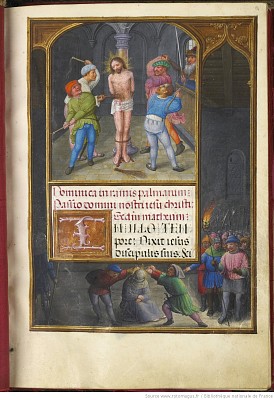 Dominica in ramis palmarum
Passio domini nostri iesu christi
Secūm matheum
IN ILLO TEM
pore: Dixit iesus
discipulis suis. &
Source www.notesdumas.fr / Bibliothèque nationale de France